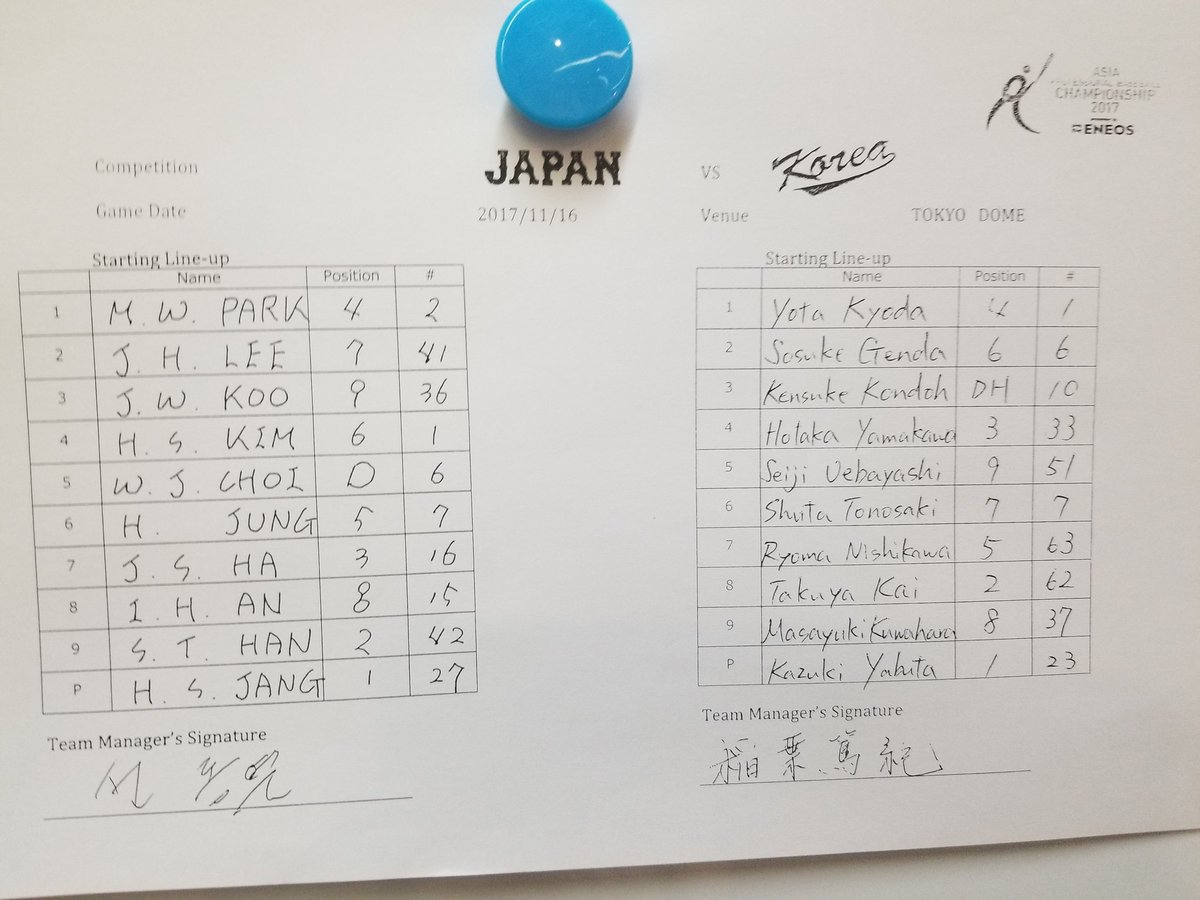 ASIA
PROFESSIONAL BASEBALL
CHAMPIONSHIP
2017
ENEOS
Competition JAPAN VS Korea
Game Date 2017/11/16 Venue TOKYO DOME
Starting Line-up
Name Position #
1 M. W. PARK 4 2
2 J. H. LEE 7 41
3 J. W. KOO 9 36
4 H. S. KIM 6 1
5 W. J. CHOI D 6
6 H. JUNG 5 7
7 J. S. HA 3 16
8 I. H. AN 8 15
9 S. T. HAN 2 42
P H. S. JANG 1 27
Team Manager's Signature
Starting Line-up
Name Position #
1 Yota Kyoda 4 1
2 Sosuke Genda 6 6
3 Kensuke Kondoh DH 10
4 Hotaka Yamakawa 3 33
5 Seiji Uebayashi 9 51
6 Shuta Tonosaki 7 7
7 Ryoma Nishikawa 5 63
8 Takuya Kai 2 62
9 Masayuki Kuwahara 8 37
P Kazuki Yabuta 1 23
Team Manager's Signature
稲葉篤紀